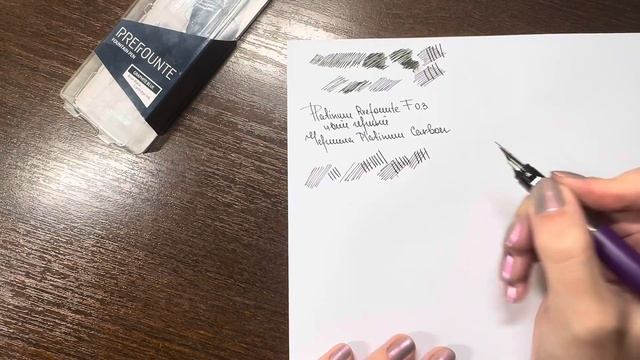 PREFOUNTE
FOUNTAIN PEN
GRAPHITE BLUE
Platinum Prefounte F 03
Чернила Platinum Carbon